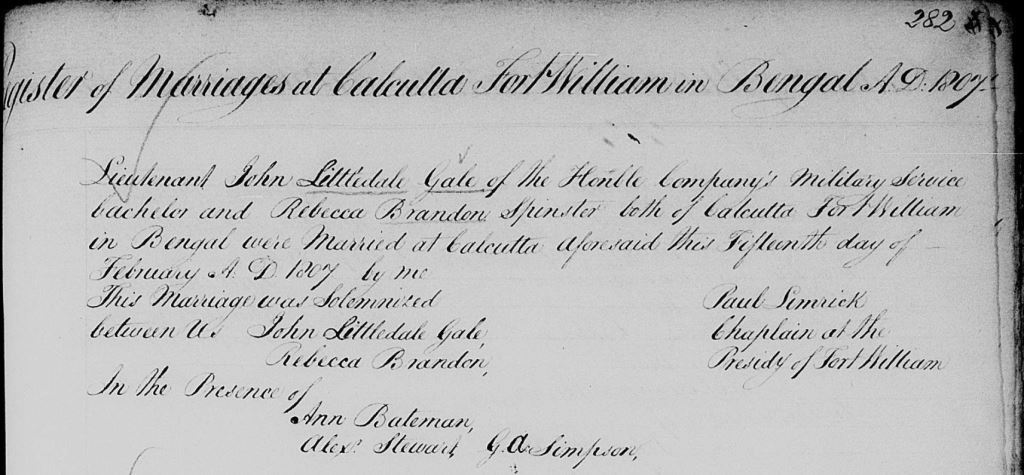 282
Register of Marriages at Calcutta Fort William in Bengal A.D. 1807
Lieutenant John Littledale Gale of the Honble Company's Military Service
bachelor and Rebecca Brandon, Spinster both of Calcutta Fort William
in Bengal were Married at Calcutta aforesaid this Fifteenth day of
February A. D. 1807 by me
This Marriage was Solemnized
Paul Limrick
between Us John Littledale Gale,
Chaplain at the
Rebecca Brandon,
Presidy of Fort William
In the Presence of
Ann Bateman,
Alexr. Stewart, G. Simpson,